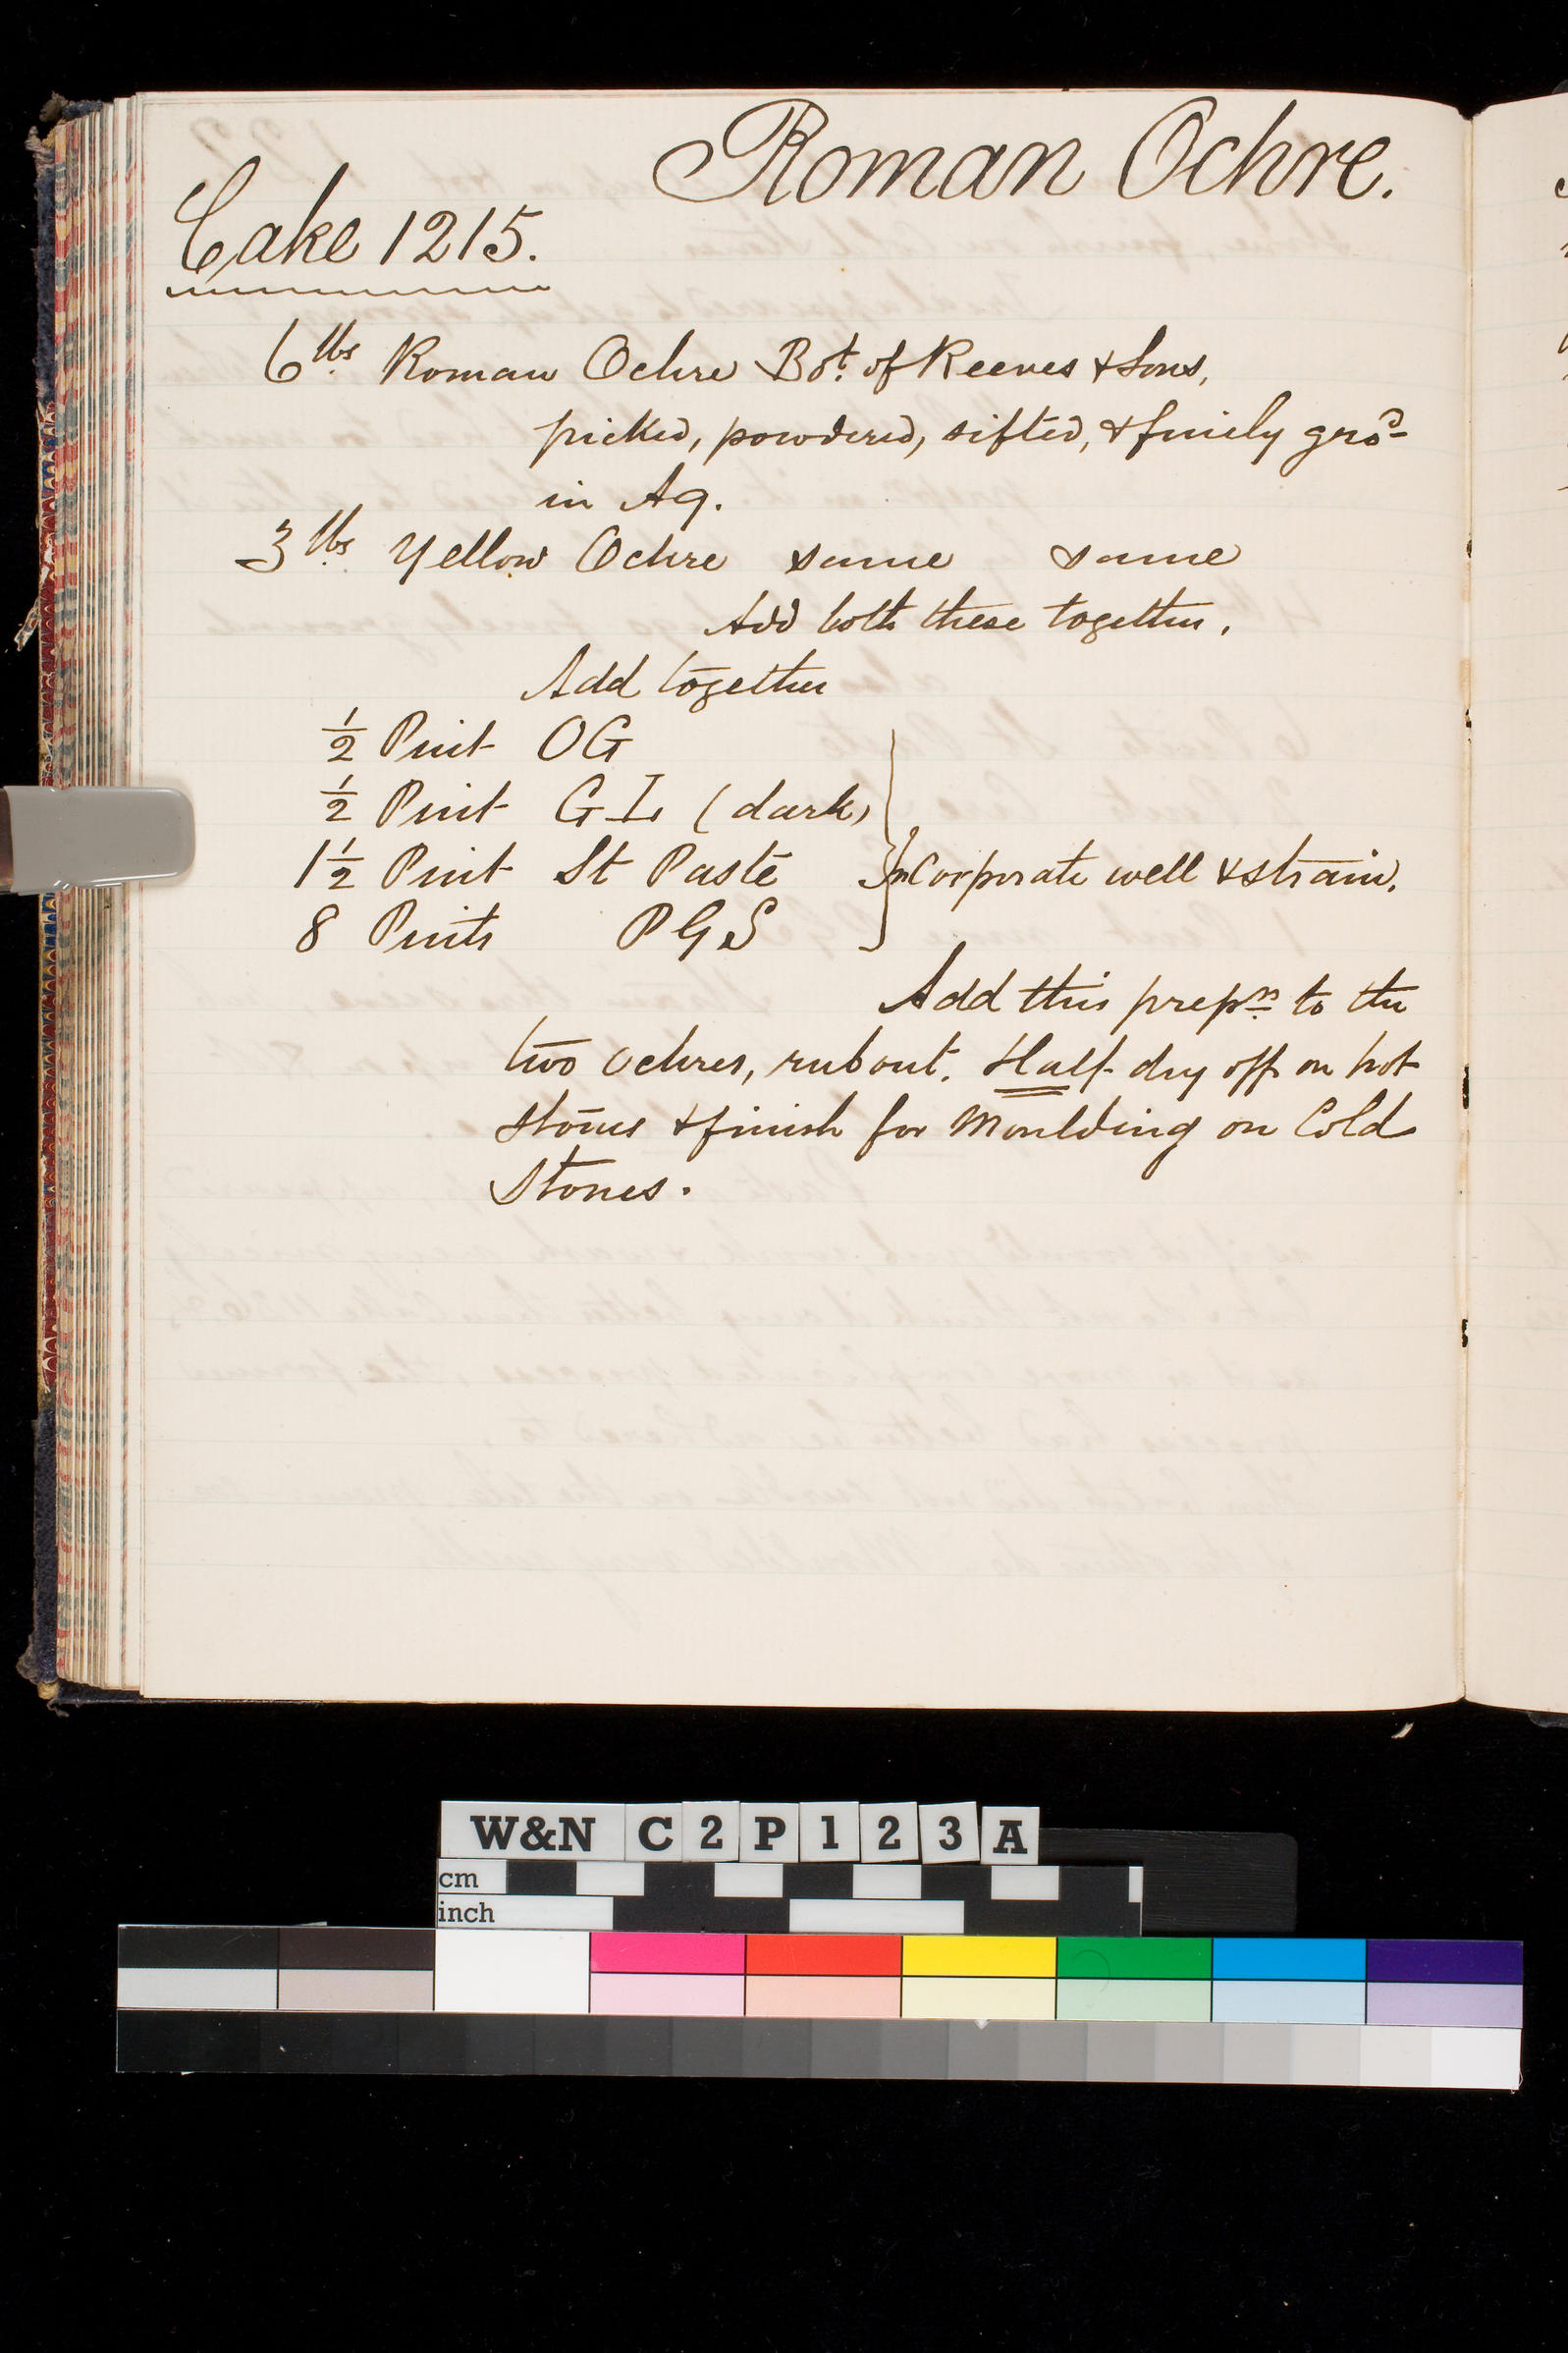 Roman Ochre.
Cake 1215.
6 lbs Roman Ochre Bot. of Reeves & Sons,
picked, powdered, sifted, & finely gro^d
in Aq.
3 lbs Yellow Ochre same same
Add both these together.
Add together
1/2 Pint OG
1/2 Pint GL (dark)
1 1/2 Pint St Paste
Incorporate well & strain.
8 Pints PGS
Add this prep^n to the
two Ochres, rub out. Half dry off on hot
stones & finish for Moulding on Cold
Stones.
W&N C2P123A
cm
inch